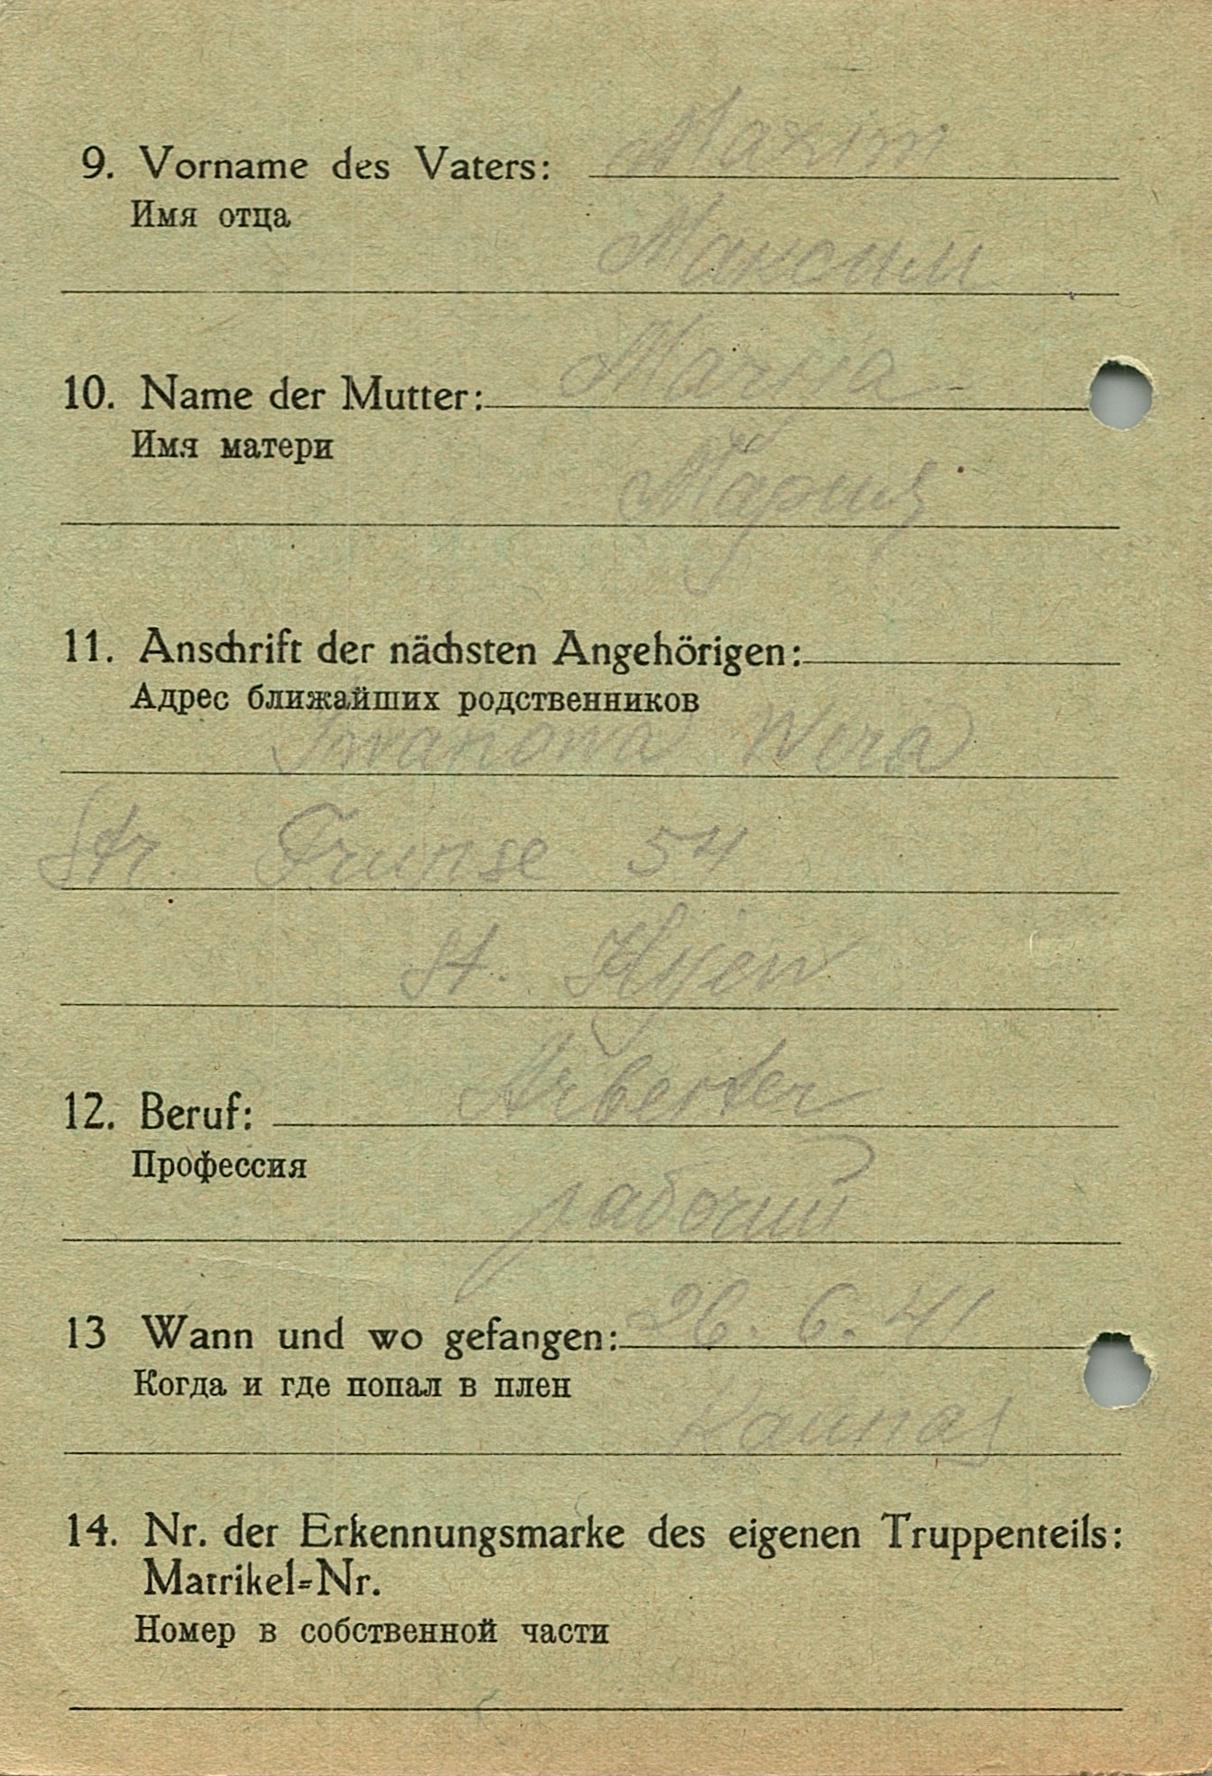 9. Vorname des Vaters: Maxim
Имя отца
Максим
10. Name der Mutter: Maria
Имя матери
Мария
11. Anschrift der nächsten Angehörigen:
Адрес ближайших родственников
Iwanowa Wera
Str. Frunse 54
st. Kijew
12. Beruf: Arbeiter
Профессия
рабочий
13 Wann und wo gefangen: 26. 6. 41
Когда и где попал в плен
Kaunas
14. Nr. der Erkennungsmarke des eigenen Truppenteils:
Matrikel=Nr.
Номер в собственной части